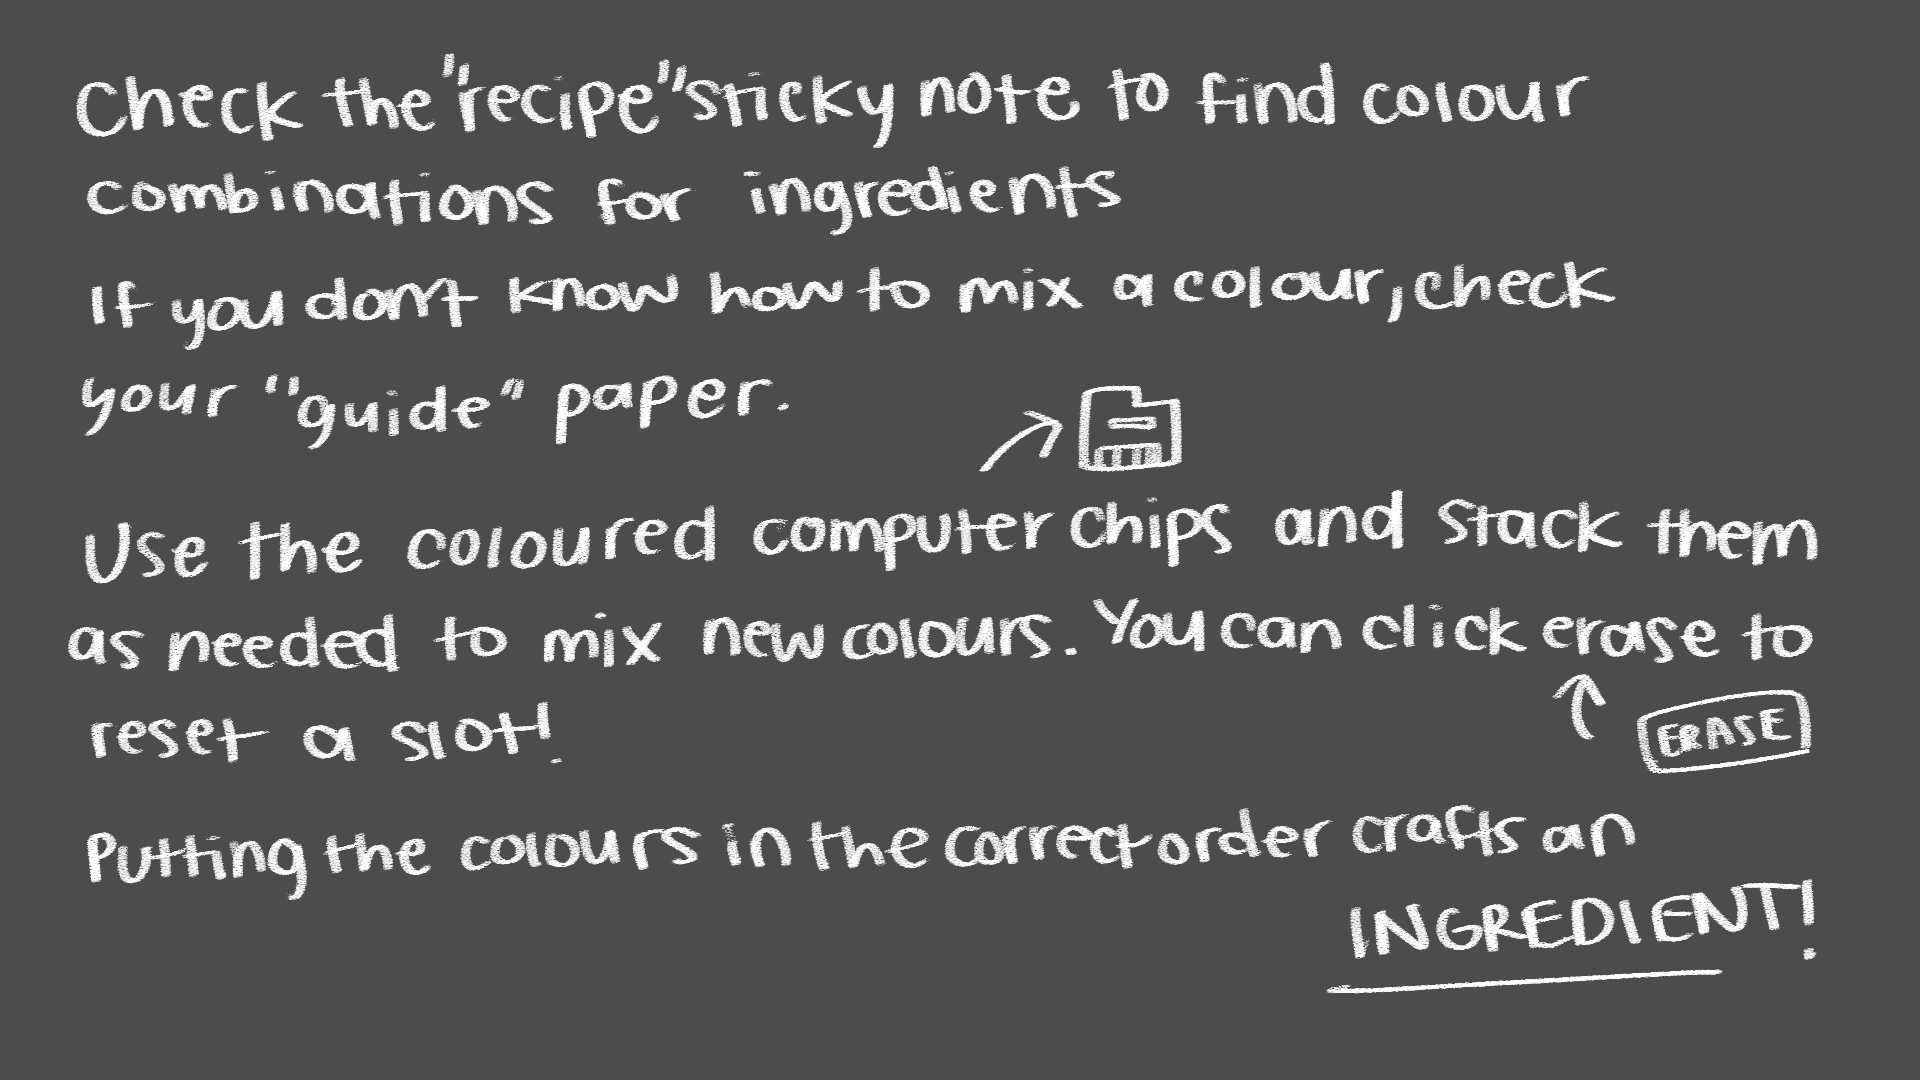 Check the "recipe" sticky note to find colour
combinations for ingredients
If you don't know how to mix a colour, check
your "guide" paper.
Use the coloured computer chips and stack them
as needed to mix new colours. You can click erase to
reset a slot!
ERASE
Putting the colours in the correct order crafts an
INGREDIENT!